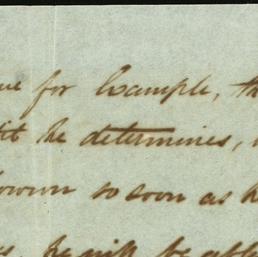 for Example, th
he determines,
so soon as h
he will be